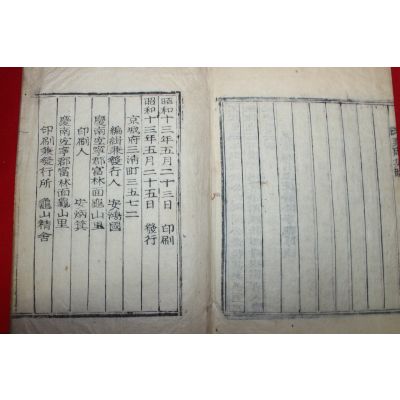 昭和十三年五月二十三日 印刷
昭和十三年五月二十五日 發行
京城府三淸町三五ノ二
編緝兼發行人 安鴻國
慶南宜寧郡富林面龜山里
印刷人 安炳箕
慶南宜寧郡富林面龜山里
印刷兼發行所 龜山精舍